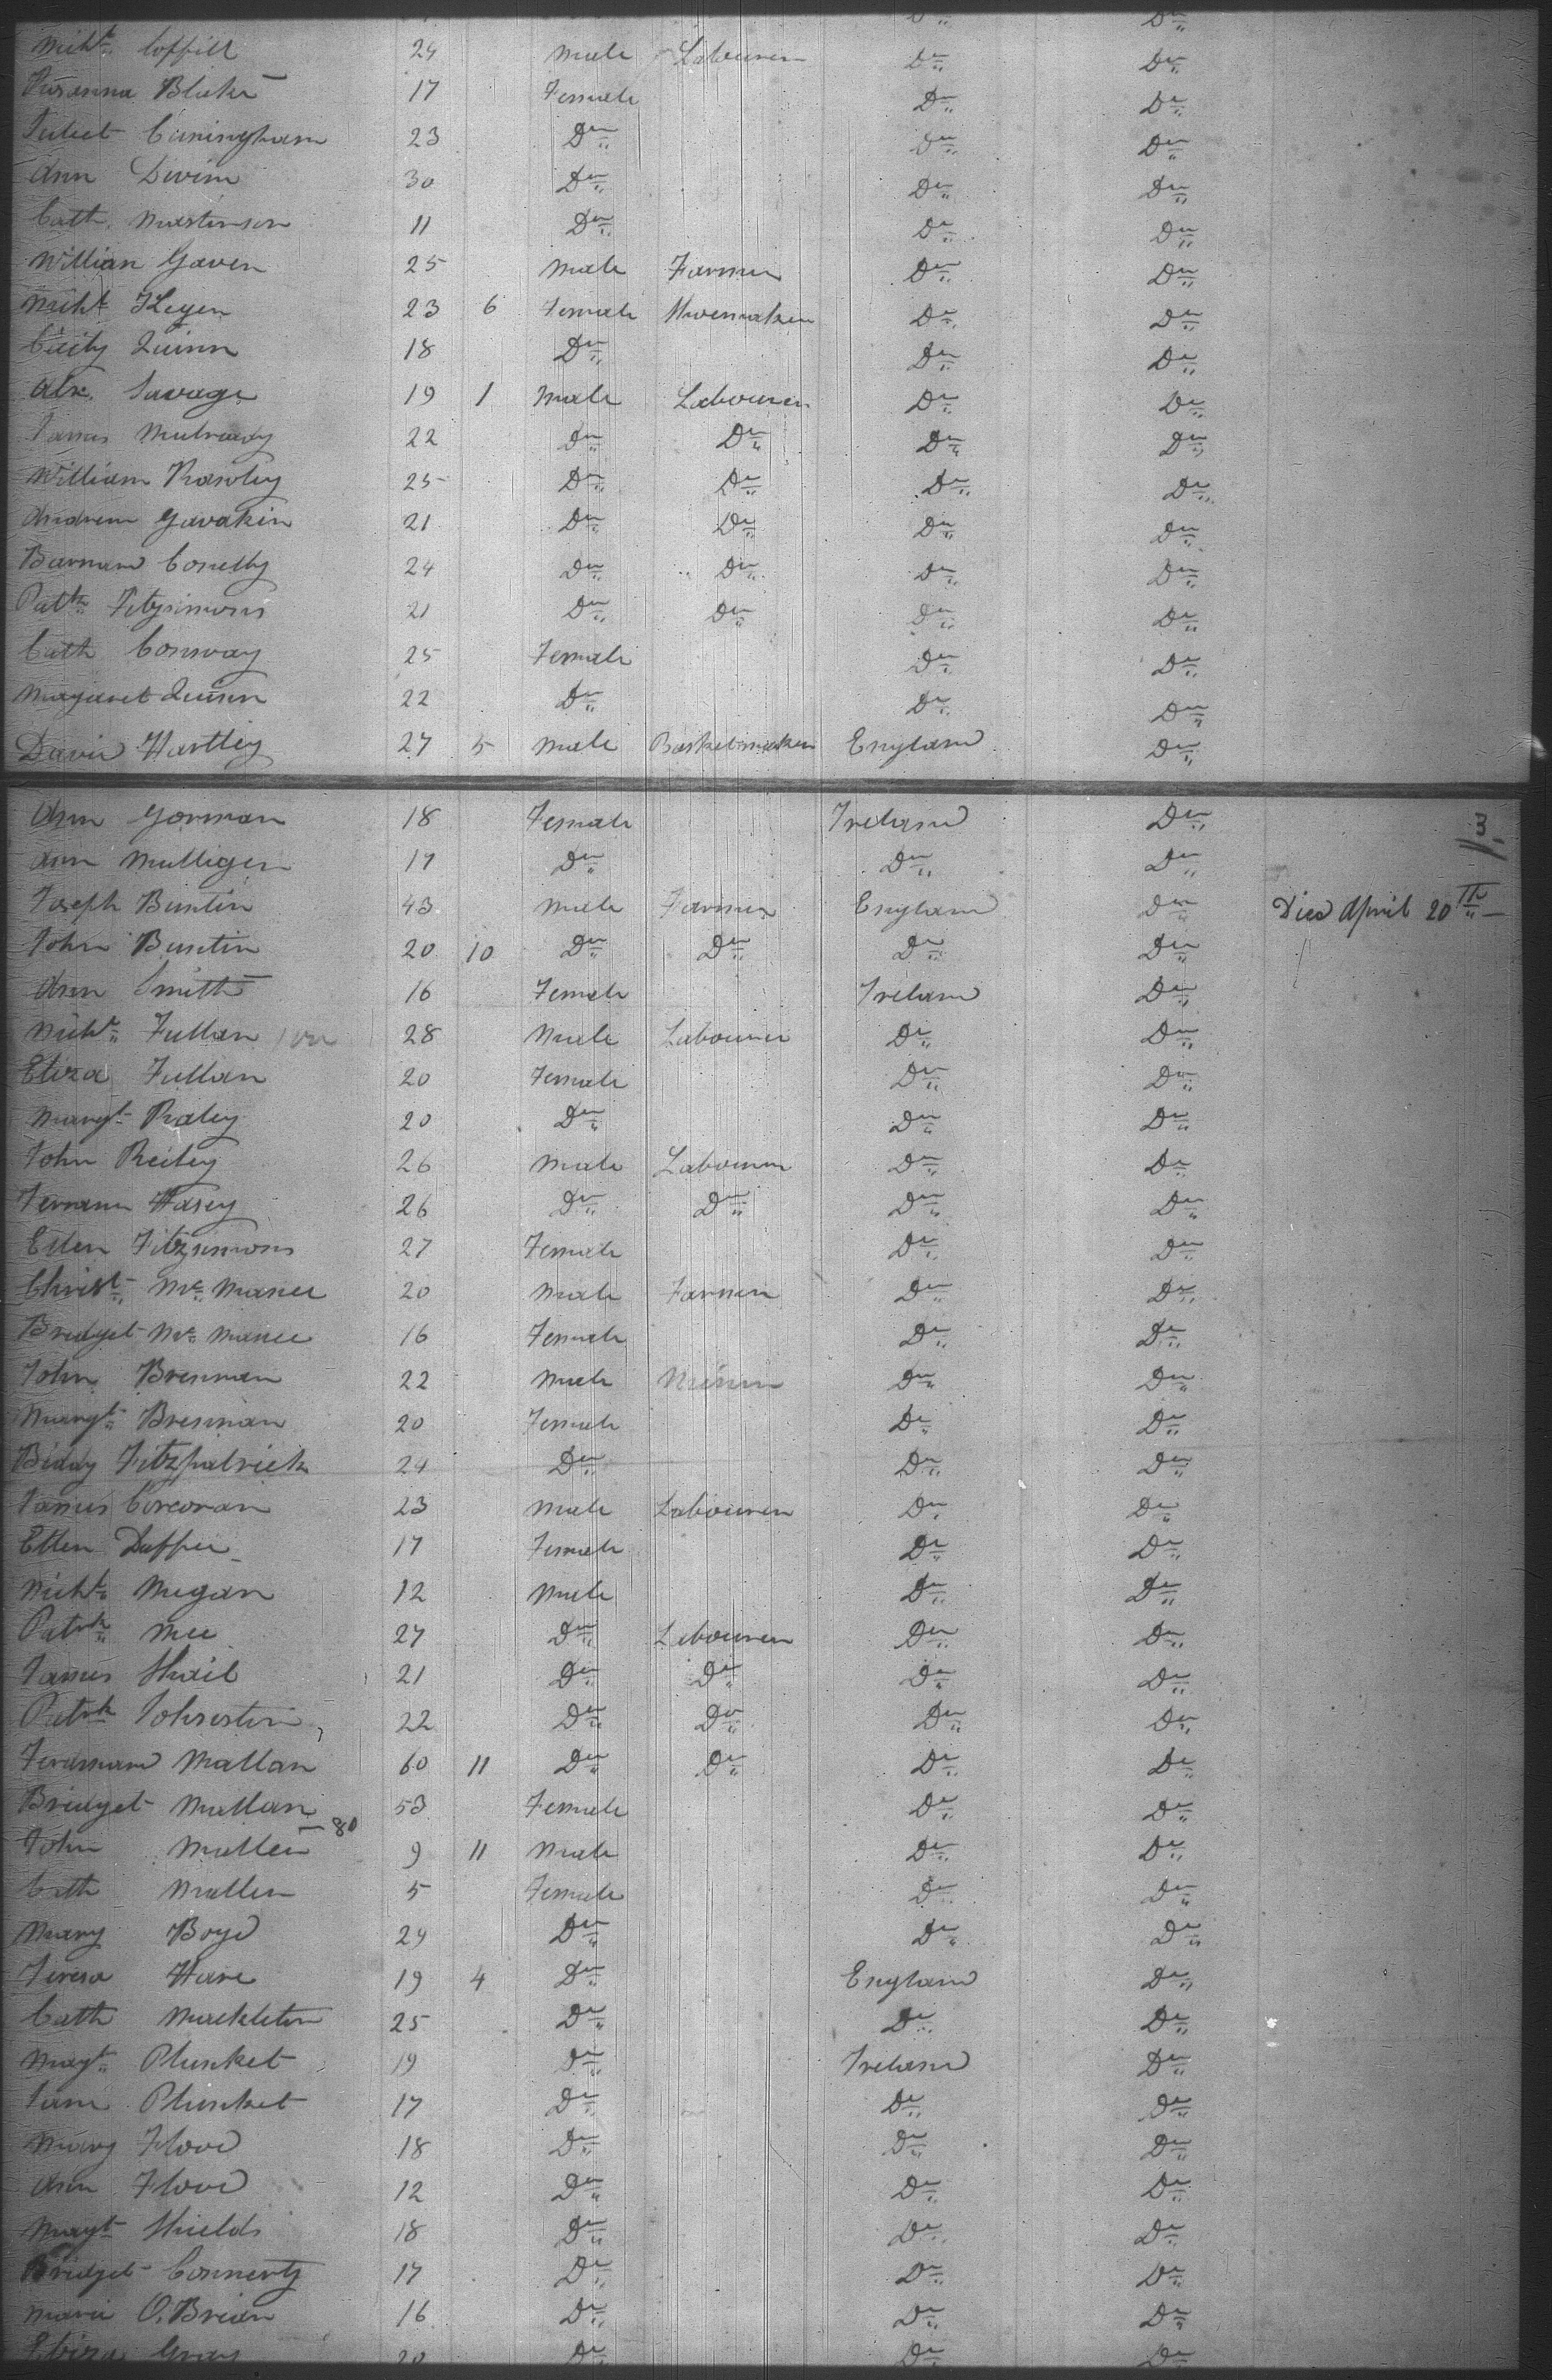 Do Do
Michl Coffill 24 Male Labourer Do Do
Susanna Blake 17 Female Do Do
Cuningham 23 Do Do Do
Ann Divin 30 Do Do Do
Cath. Mastinson 11 Do Do Do
William Gaven 25 Male Farmer Do Do
Michl 23 6 Female Shoemaker Do Do
Cicily Quinn 18 Do Do Do
Alx. Savage 19 1 Male Labourer Do Do
James Mulready 22 Do Do Do Do
William Rawley 25 Do Do Do Do
Andrew Gavakin 21 Do Do Do Do
Barnard Conelly 24 Do Do Do Do
Patk Fitzsimons 21 Do Do Do Do
Cath Conway 25 Female Do Do
Magaret Quinn 22 Do Do Do
David Hartley 27 5 Male Basketmaker England Do
Ann Gorman 18 Female Ireland Do 3
Ann Mulligen 17 Do Do Do
Joseph Buntin 43 Male Farmer England Do Died April 20th
John Buntin 20 10 Do Do Do Do
Ann Smith 16 Female Ireland Do
Michl Fullan 28 Male Labourer Do Do
Eliza Fullan 20 Female Do Do
Margt Raley 20 Do Do Do
John Reiley 26 Male Labourer Do Do
Hasey 26 Do Do Do Do
Ellen Fitzsimons 27 Female Do Do
Christ McManee 20 Male Farmer Do Do
Bridget McManee 16 Female Do Do
John Brennan 22 Male Do Do
Margt Brennan 20 Female Do Do
Biddy Fitzpatrick 24 Do Do Do
James Corcoran 23 Male Labourer Do Do
Ellen Duffee 17 Female Do Do
Michl Megan 12 Male Do Do
Patrk Mee 27 Do Labourer Do Do
James Shail 21 Do Do Do Do
Patrk Johnston 22 Do Do Do Do
Ferdinand Mallan 60 11 Do Do Do Do
Bridget Mallan 53 Female Do Do
John Mallen 80 9 11 Male Do Do
Cath Mallen 5 Female Do Do
Mary Boyd 29 Do Do Do
Teresa Hare 19 4 Do England Do
Cath Muckleton 25 Do Do Do
Magt Plunket 19 Do Ireland Do
Jane Plunket 17 Do Do Do
Mary Flood 18 Do Do Do
Ann Flood 12 Do Do Do
Magt Shields 18 Do Do Do
Bridget Connerty 17 Do Do Do
Maria O.Brian 16 Do Do Do
Eliza Gray 20 Do Do Do